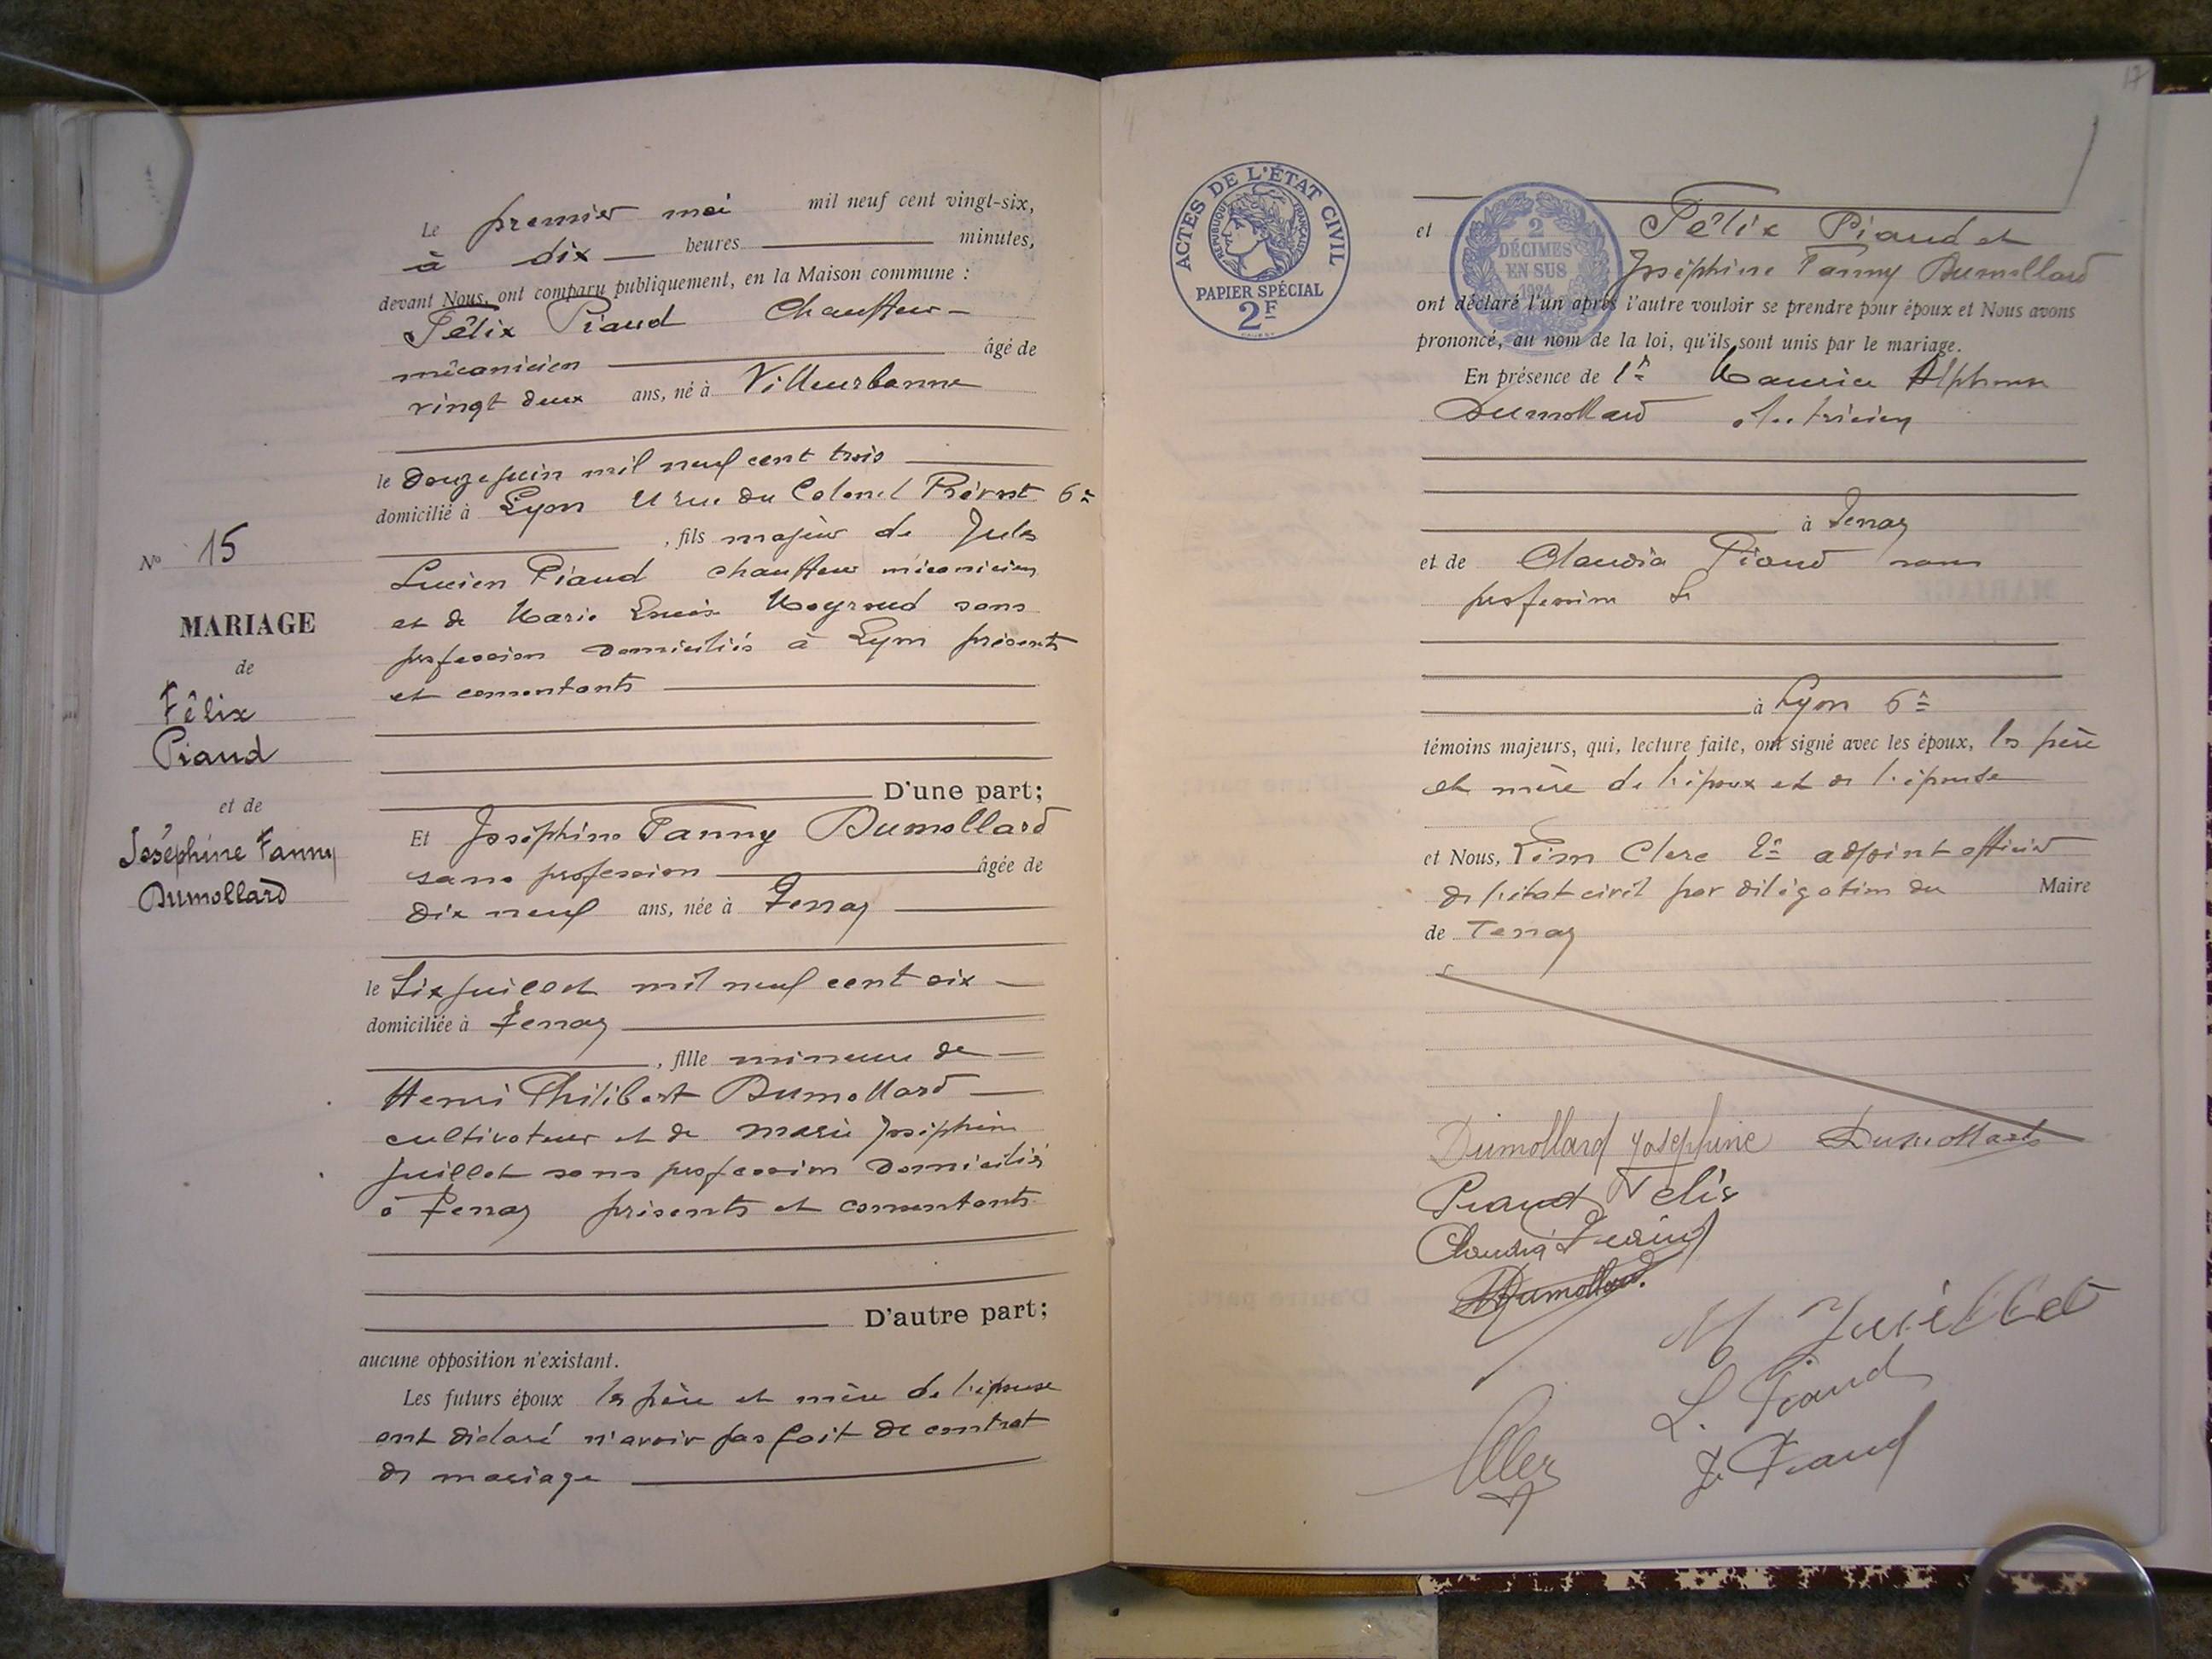 Le premier mai mil neuf cent vingt-six,
à dix heures minutes,
devant Nous, ont comparu publiquement, en la Maison commune :
Félix Piaud Chauffeur-
mécanicien âgé de
vingt deux ans, né à Villeurbanne
le douze juin mil neuf cent trois
domicilié à Lyon rue du Colonel Prévost 6e
, fils majeur de Jules
Lucien Piaud chauffeur mécanicien
et de Marie Meyroud sans
profession domiciliés à Lyon présents
et consentants
D'une part;
Et Joséphine Fanny Dumollard
sans profession âgée de
dix neuf ans, née à Tenay
le six juillet mil neuf cent six
domiciliée à Tenay
, fille mineure de
Henri Philibert Dumollard
cultivateur et de marie Joséphine
Juillet sans profession domiciliés
à Tenay présents et consentants
D'autre part;
aucune opposition n'existant.
Les futurs époux les père et mère de l'épouse
ont déclaré n'avoir pas fait de contrat
de mariage
No 15
MARIAGE
de
Félix
Piaud
et de
Joséphine Fanny
Dumollard
17
ACTES DE L'ÉTAT CIVIL
RÉPUBLIQUE FRANÇAISE
PAPIER SPÉCIAL
2F
2
DÉCIMES
EN SUS
1924
et Félix Piaud et
Joséphine Fanny Dumollard
ont déclaré l'un après l'autre vouloir se prendre pour époux et Nous avons
prononcé, au nom de la loi, qu'ils sont unis par le mariage.
En présence de 1° Maurice Alphonse
Dumollard électricien
à Tenay
et de Claudia Piaud sans
profession
à Lyon 6e
témoins majeurs, qui, lecture faite, ont signé avec les époux, les père
et mère de l'époux et de l'épouse
et Nous, Clerc 2e adjoint officier
de l'état civil par délégation du Maire
de Tenay
Dumollard Joséphine Dumollard
Piaud Félix
Claudia Piaud
Dumollard
M Juillet
L. Piaud
J. Piaud